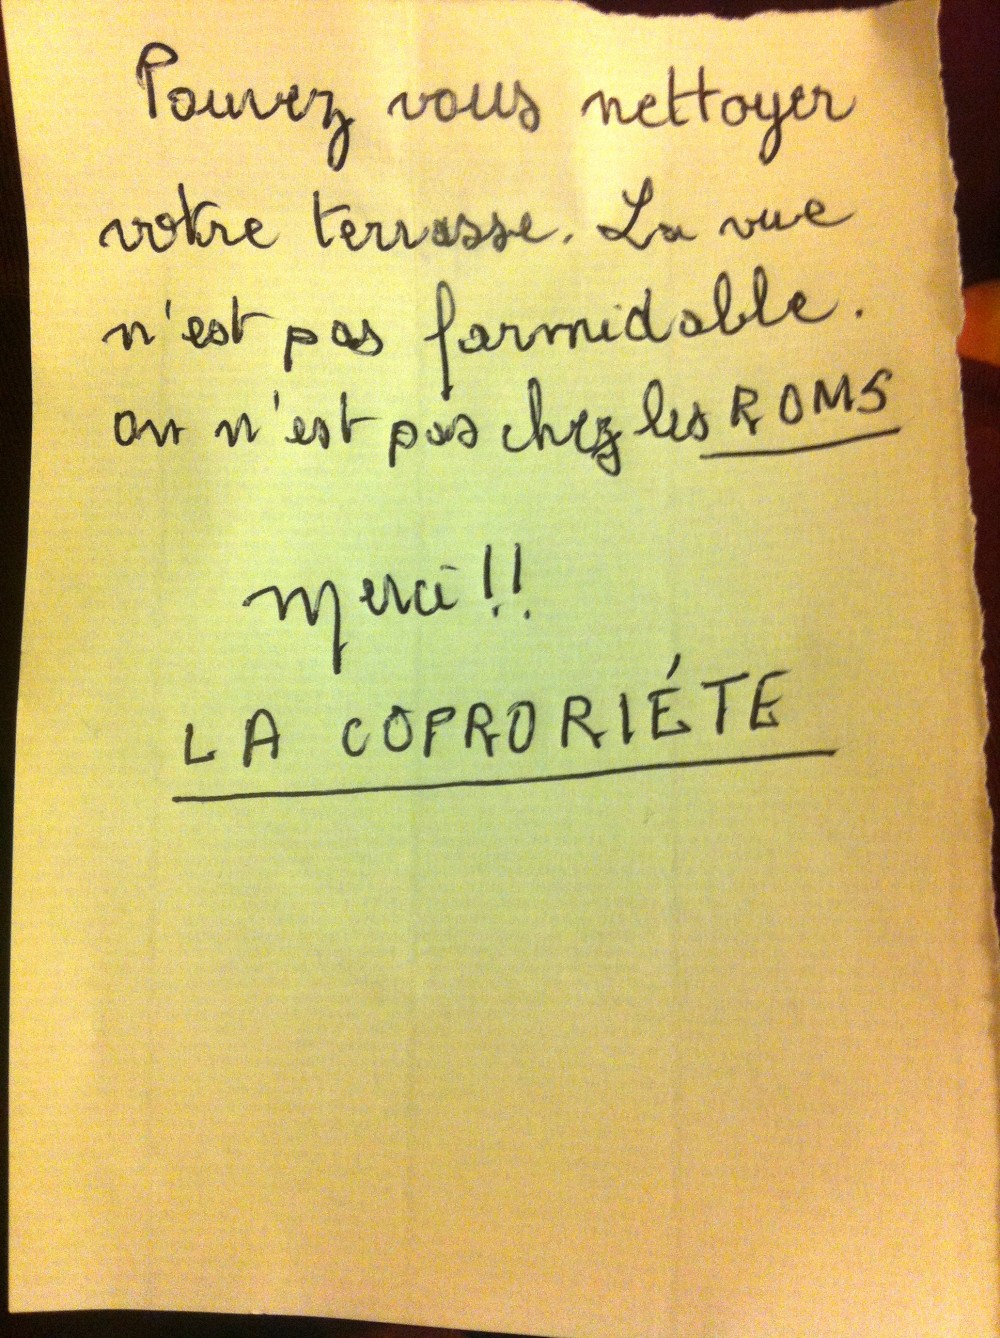 Pouvez vous nettoyer
votre terrasse. La vue
n'est pas formidable.
on n'est pas chez les ROMS
Merci !!
LA COPRORIÉTE